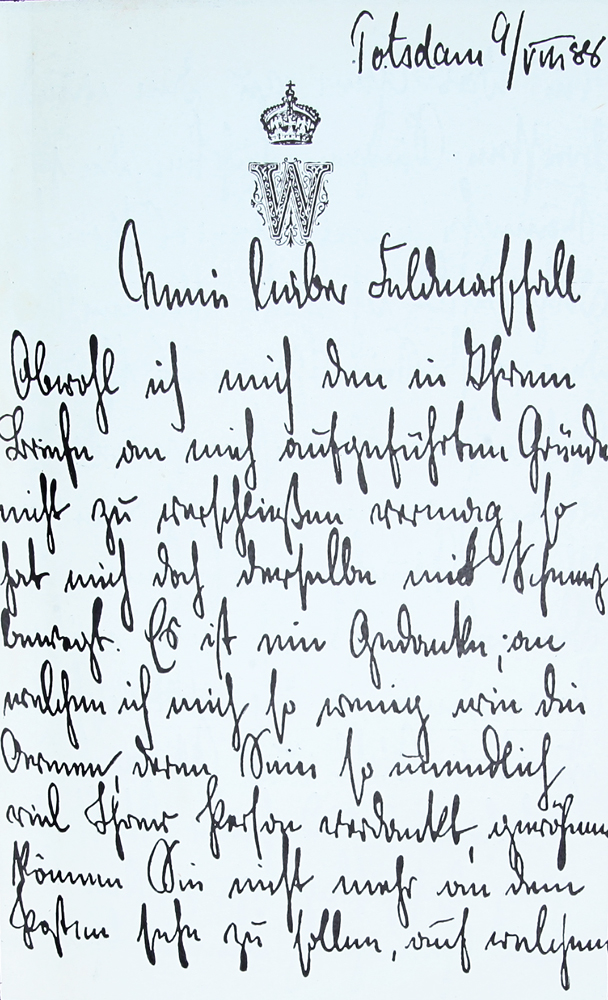 Potsdam 9/VIII 88
W
Mein lieber Feldmarschall
Obwohl ich mich den in Ihrem
Briefe an mich aufgeführten Gründe
nicht zu verschließen vermag, so
hat mich doch derselbe mit Schmerz
bewegt. Es ist ein Gedanke, an
welchen ich mich so wenig wie die
Armee, deren Sein so unendlich
viel Ihrer Person verdankt, gewöhnen
können Sie nicht mehr an dem
Posten sehn zu sollen, auf welchem